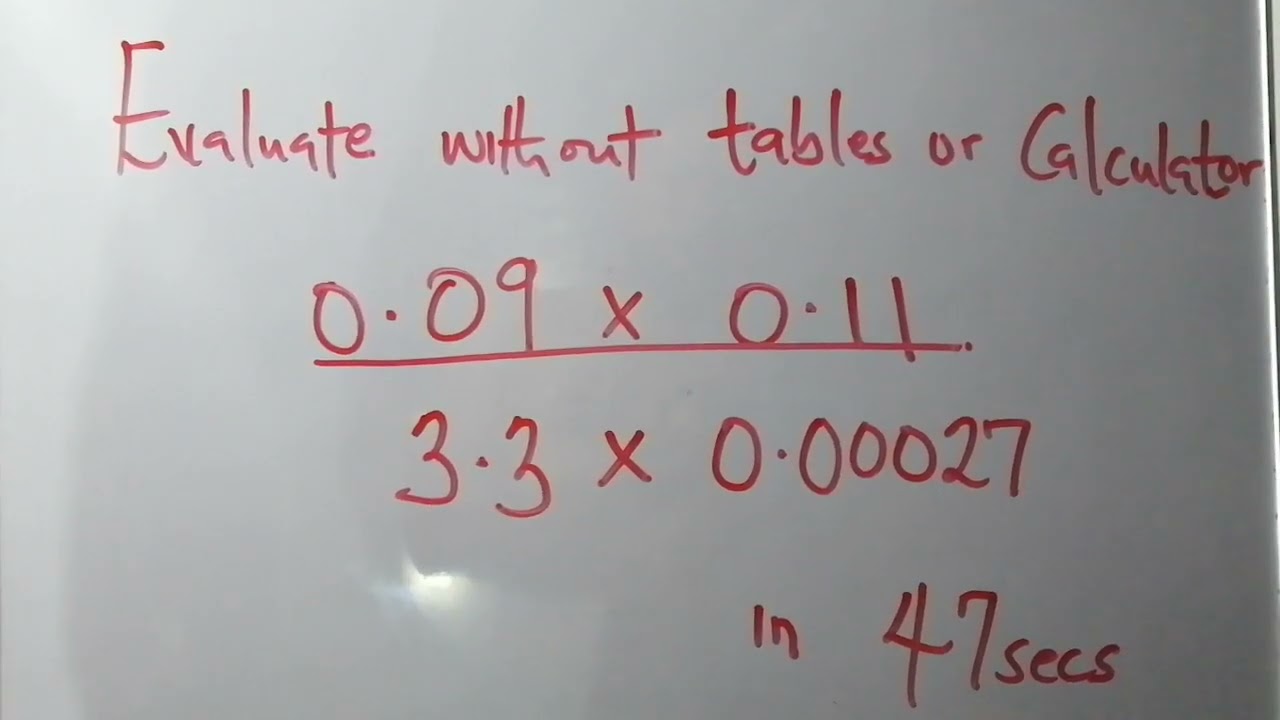 Evaluate without tables or Calculator
0.09 x 0.11
3.3 x 0.00027
in 47secs